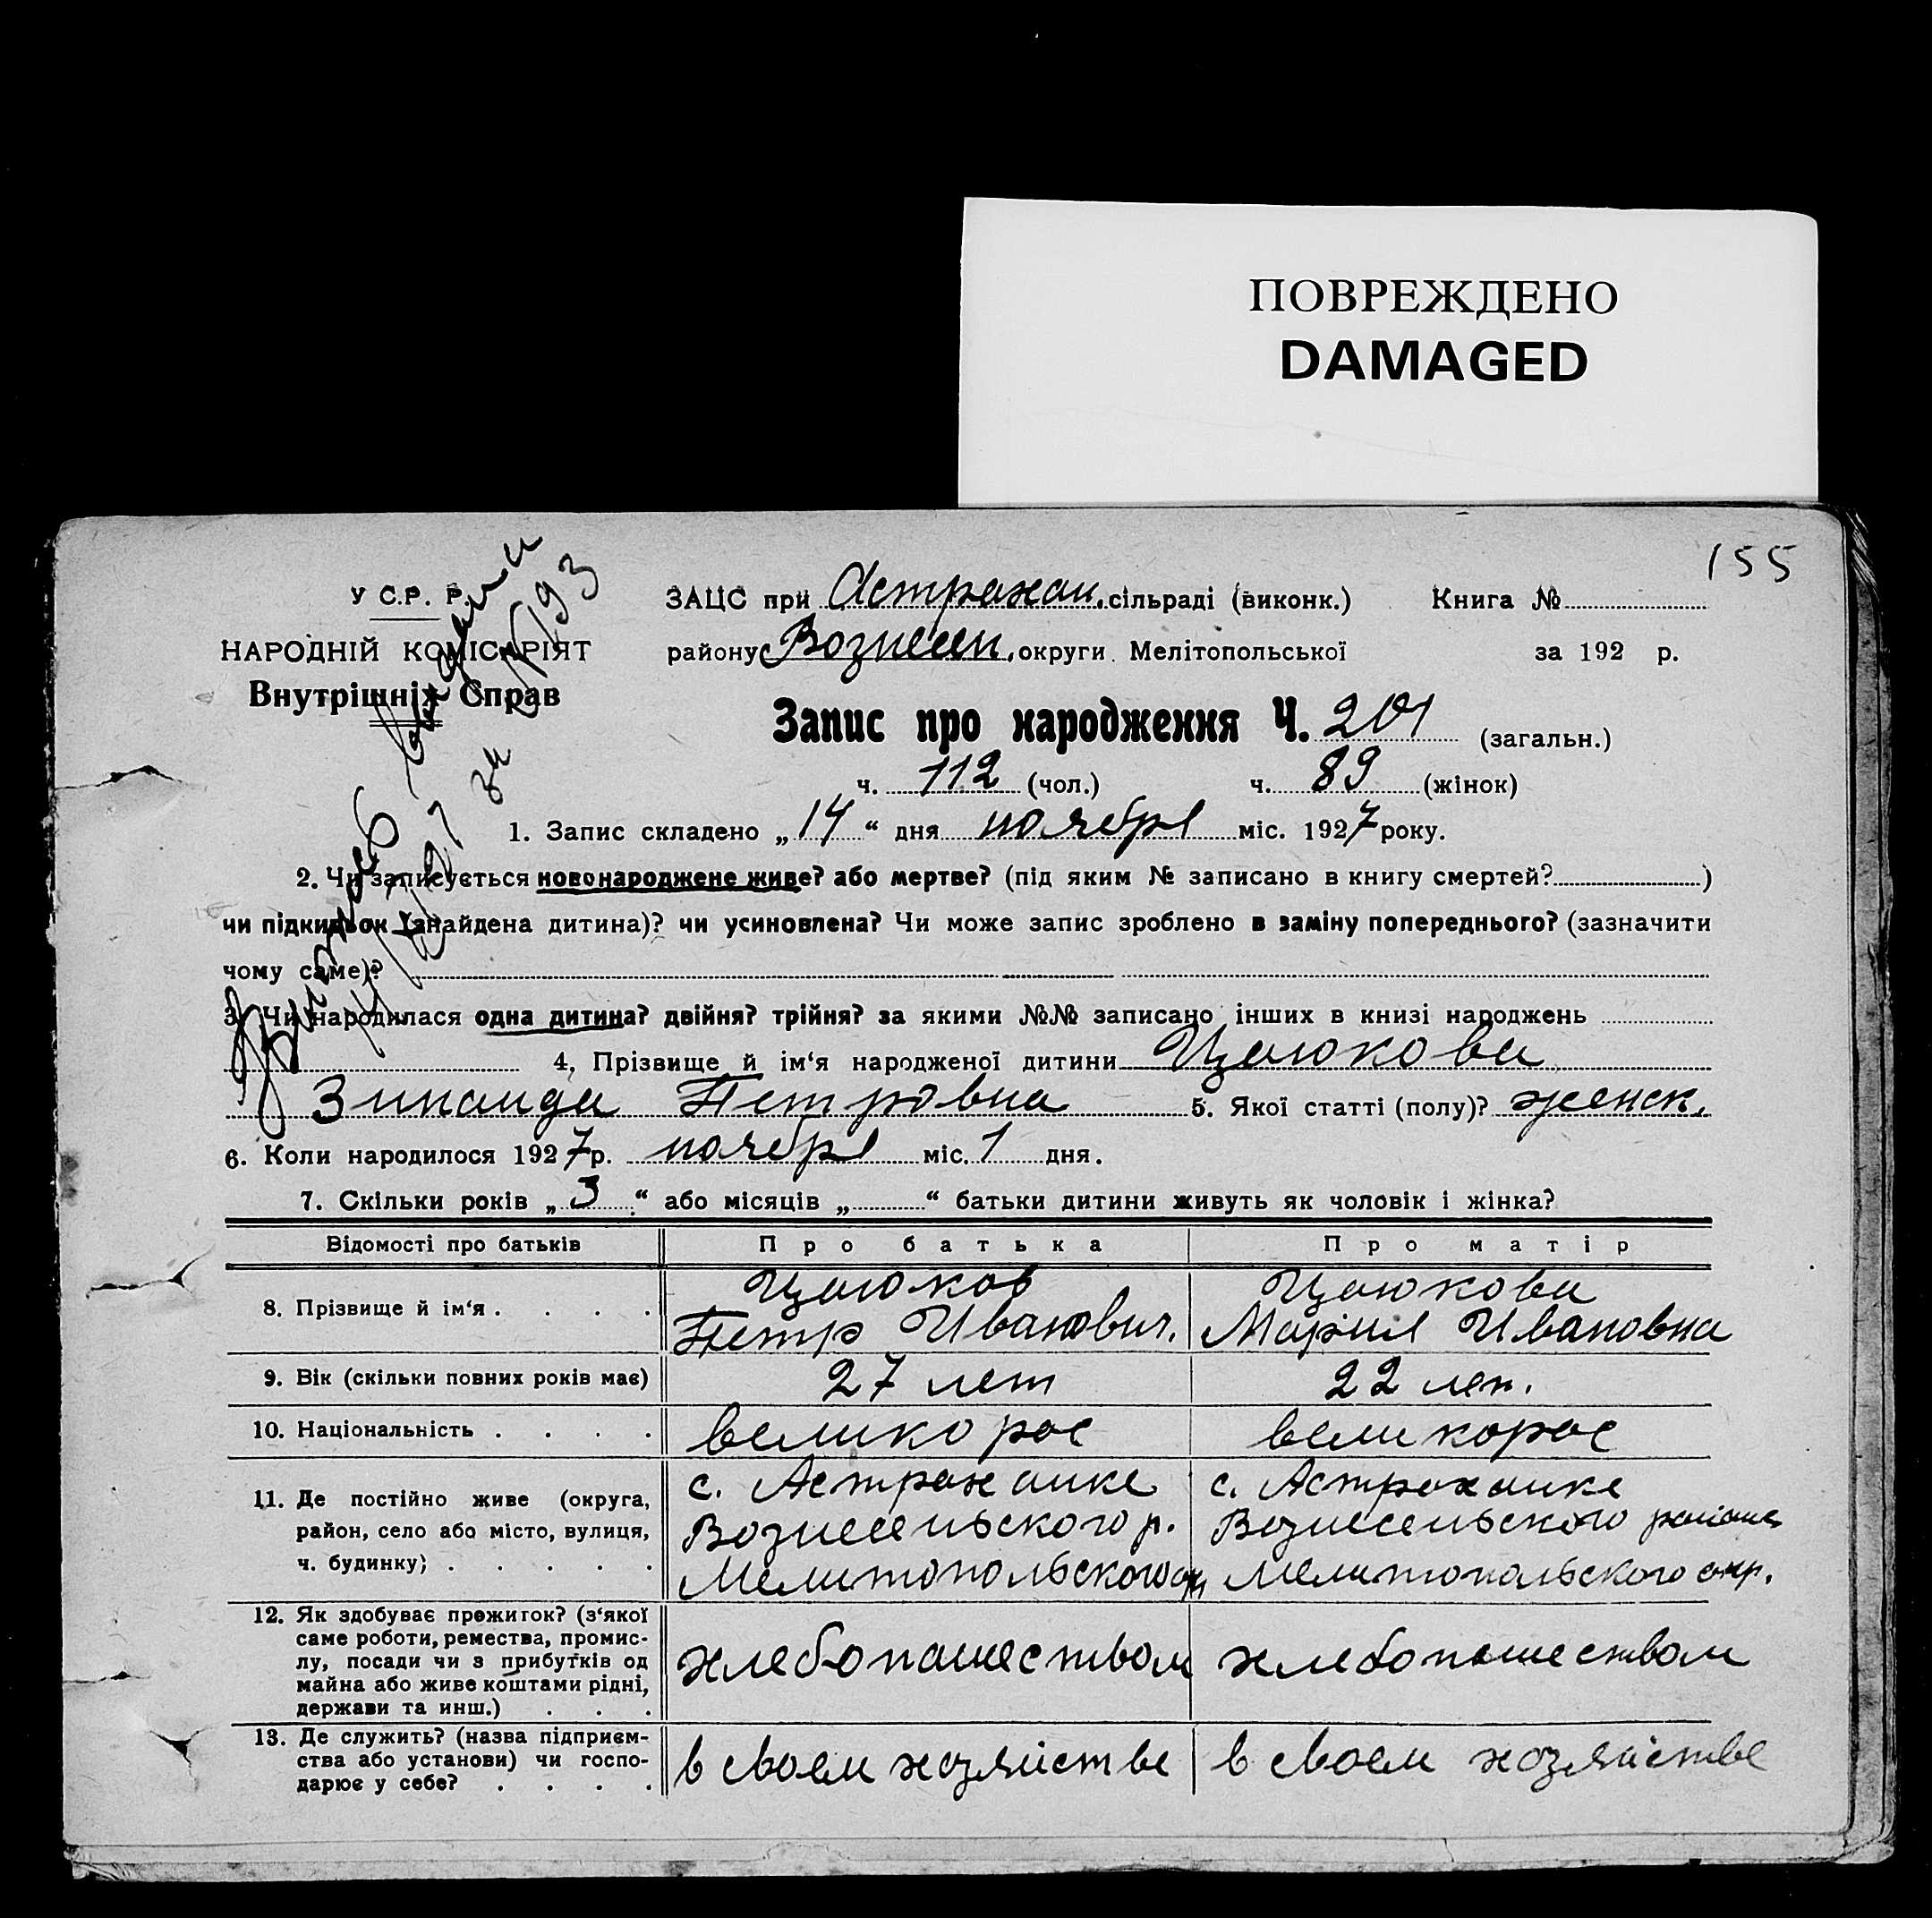 ПОВРЕЖДЕНО
DAMAGED
155
У С.Р. Р.
НАРОДНІЙ КОМІСАРІЯТ
Внутрішніх Справ
ЗАЦС при Астрахан. сільраді (виконк.) Книга №
району Вознесен. округи Мелітопольської за 192 р.
Запис про народження Ч. 201 (загальн.)
ч. 112 (чол.) ч. 89 (жінок)
1. Запис складено „14“ дня ноября міс. 1927 року.
2. Чи записується новонароджене живе? або мертве? (під яким № записано в книгу смертей? )
чи підкидьок (знайдена дитина)? чи усиновлена? Чи може запис зроблено в заміну попереднього? (зазначити
чому саме)?
3. Чи народилася одна дитина? двійня? трійня? за якими №№ записано інших в книзі народжень
4, Прізвище й ім‘я народженої дитини Цаюкова
Зинаида Петровна 5. Якої статті (полу)? женск.
6. Коли народилося 1927 р. ноября міс. 1 дня.
7. Скільки років „3“ або місяців „ “ батьки дитини живуть як чоловік і жінка?
Відомості про батьків Про батька Про матір
8. Прізвище й ім‘я . . . . Цаюков Петр Иванович. Цаюкова Мария Ивановна
9. Вік (скільки повних років має) 27 лет 22 лет.
10. Національність . . . . великорос великорос
11. Де постійно живе (округа, район, село або місто, вулиця, ч. будинку; . . . . . с. Астраханке Вознесеньского р. Мелитопольского окр с. Астраханке Вознесеньского района Мелитопольского окр.
12. Як здобуває прожиток? (з‘якої саме роботи, ремества, промислу, посади чи з прибутків од майна або живе коштами рідні, держави та инш.) . . . хлебопашеством хлебопашеством
13. Де служить? (назва підприємства або установи) чи господарює у себе? . . . . в своем хозяйстве в своем хозяйстве